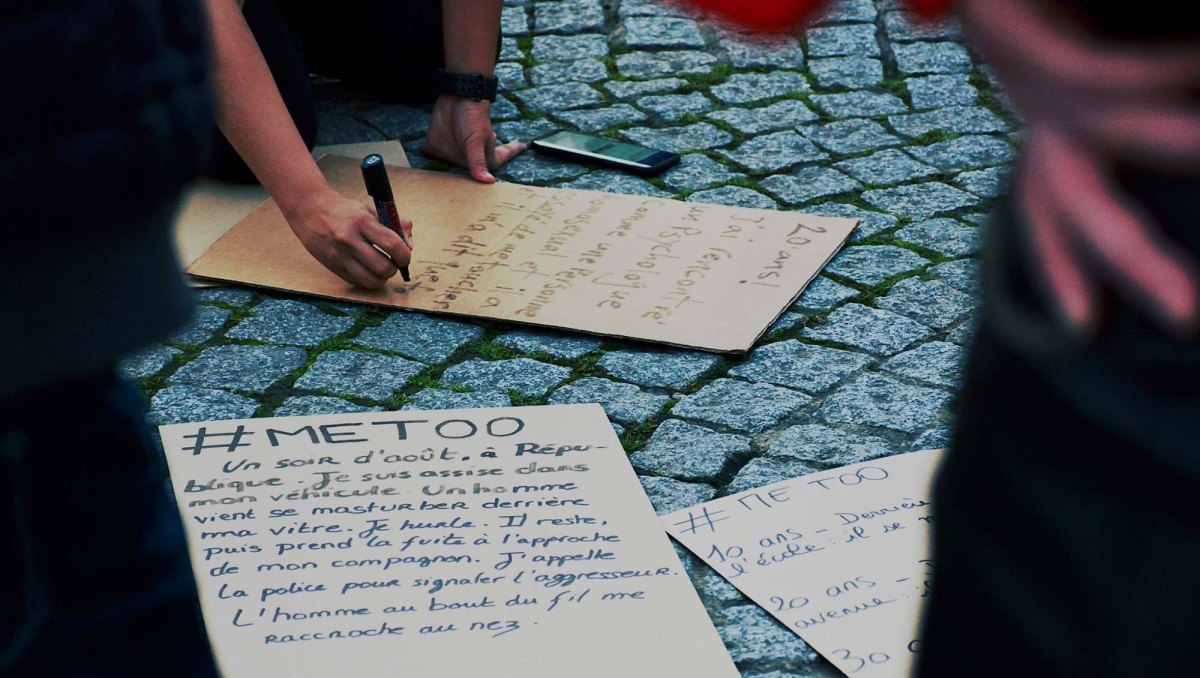 20 ans!
J'ai rencontré
Psychologue
comme une Personne
homosexuel et il a
de me
et il m'a dit que t
#METOO
Un soir d'août, à Répu-
blique. Je suis assise dans
mon véhicule. Un homme
vient se masturber derrière
ma vitre. Je hurle. Il reste,
puis prend la fuite à l'approche
de mon compagnon. J'appelle
la police pour signaler l'aggresseur.
L'homme au bout du fil me
raccroche au nez.
#ME TOO
10 ans - Derriè
l'école : il se
20 ans -
avenue :
30